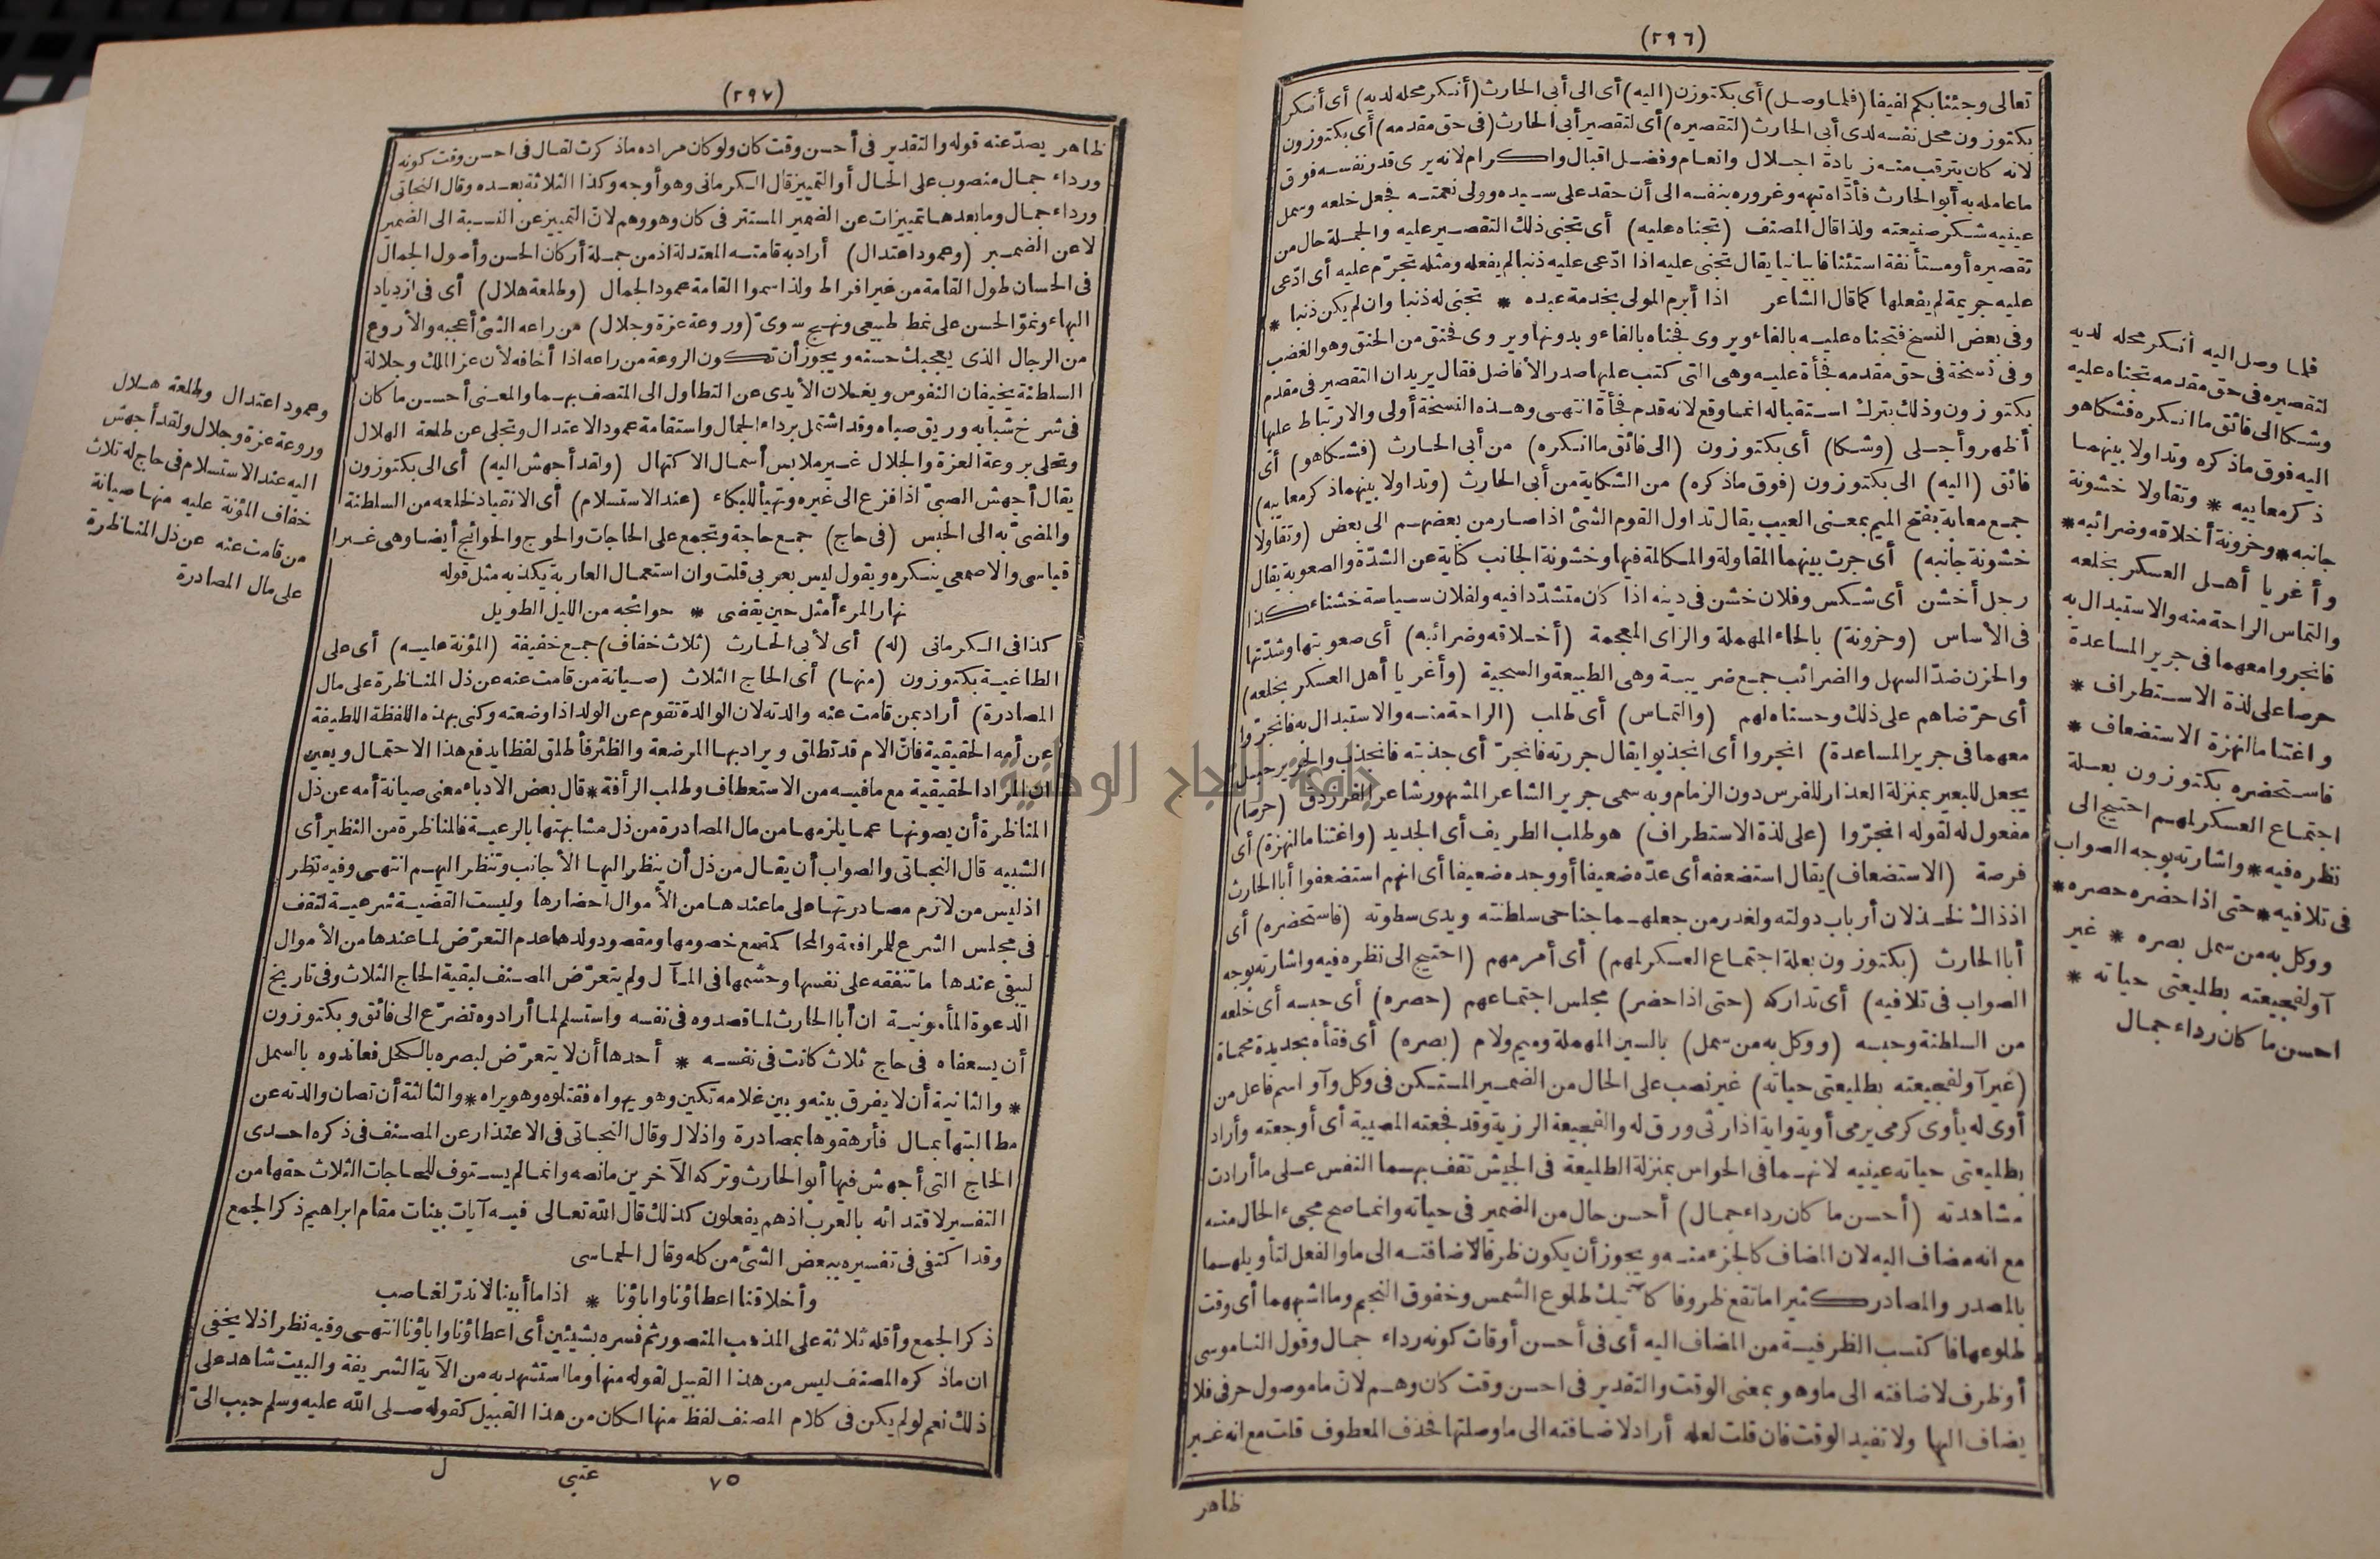 (٢٩٦)
تعالى وجئنا بكم لفيفا (فلما وصل) أى بكتوزن (اليه) أى الى أبى الحارث (أنكر محله لديه) أى أنكر
بكتوزون محل نفسه لدى أبى الحارث (لتقصيره) أى لتقصير أبى الحارث (فى حق مقدمه) أى بكتوزون
لانه كان يترقب منه زيادة اجلال وانعام وفضل اقبال واكرام لانه يرى قدر نفسه فوق
ما عامله به أبو الحارث فأدّاه تيهه وغروره بنفسه الى أن حقد على سيده وولى نعمته فجعل خلعه وسمل
عينيه شكر صنيعته ولذا قال المصنف (تجناه عليه) أى تجنى ذلك التقصير عليه والجملة حال من
تقصيره أو مستأنفة استئنافا بيانيا يقال تجنى عليه اذا ادّعى عليه ذنبا لم يفعله ومثله تجرّم عليه أى ادّعى
عليه جريمة لم يفعلها كما قال الشاعر اذا أبرم المولى بخدمة عبده * تجنى له ذنبا وان لم يكن ذنبا *
وفى بعض النسخ فتجناه عليه بالفاء ويروى فجناه بالفاء وبدونها ويروى فحنق من الحنق وهو الغضب
وفى نسخة فى حق مقدمه فجأة عليه وهى التى كتب عليها صدر الأفاضل فقال يريد ان التقصير فى مقدم
بكتوزون وذلك بترك استقباله انما وقع لانه قدم فجأة انتهى وهذه النسخة أولى والارتباط عليها
أظهر وأجلى (وشكا) أى بكتوزون (الى فائق ما انكره) من أبى الحارث (فشكاهو) أى
فائق (اليه) الى بكتوزون (فوق ما ذكره) من الشكاية من أبى الحارث (وتداولا بينهما ذكر معايبه)
جمع معابة بفتح الميم بمعنى العيب يقال تداول القوم الشئ اذا صار من بعضهم الى بعض (وتقاولا
خشونة جانبه) أى جرت بينهما المقاولة والمكالمة فيها وخشونة الجانب كناية عن الشدّة والصعوبة يقال
رجل أخشن أى شكس وفلان خشن فى دينه اذا كان متشدّدا فيه ولفلان سياسة خشناء كذا
فى الأساس (وحزونة) بالحاء المهملة والزاى المعجمة (أخلاقه وضرائبه) أى صعوبتها وشدّتها
والحزن ضدّ السهل والضرائب جمع ضريبة وهى الطبيعة والسجية (وأغريا أهل العسكر بخلعه)
أى حرّضاهم على ذلك وحسناه لهم (والتماس) أى طلب (الراحة منه والاستبدال به فانجرّوا
معهما فى جرير المساعدة) انجروا أى انجذبوا يقال جررته فانجرّ أى جذبته فانجذب والجرير حبل
يجعل للبعير بمنزلة العذار للفرس دون الزمام وبه سمى جرير الشاعر المشهور شاعر الفرزدق (حرصا)
مفعول له لقوله انجرّوا (على لذة الاستطراف) هو طلب الطريف أى الجديد (واغتنا ما لنهزة) أى
فرصة (الاستضعاف) يقال استضعفه أى عدّه ضعيفا أو وجده ضعيفا أى انهم استضعفوا أبا الحارث
اذ ذاك لخذلان أرباب دولته ولغدر من جعلهما جناحى سلطنته ويدى سطوته (فاستحضره) أى
أبا الحارث (بكتوزون بعلة اجتماع العسكر لمهم) أى أمر مهم (احتيج الى نظره فيه واشارته بوجه
الصواب فى تلافيه) أى تداركه (حتى اذا حضر) مجلس اجتماعهم (حصره) أى حبسه أى خلعه
من السلطنة وحبسه (ووكل به من سمل) بالسين المهملة وميم ولام (بصره) أى فقأه بحديدة محماة
(غير آو لفجيعته بطليعتى حياته) غير نصب على الحال من الضمير المستكن فى وكل وآو اسم فاعل من
أوى له يأوى كرمى يرمى أوية واية اذا رثى ورق له والفجيعة الرزية وقد فجعته المصيبة أى أوجعته وأراد
بطليعتى حياته عينيه لانهما فى الحواس بمنزلة الطليعة فى الجيش تقف بهما النفس على ما أرادت
مشاهدته (أحسن ما كان رداء جمال) أحسن حال من الضمير فى حياته وانما صح مجىء الحال منه
مع انه مضاف اليه لان المضاف كالجزء منه ويجوز أن يكون ظرفا لاضافته الى ما والفعل لتأويلهما
بالمصدر والمصادر كثيرا ما تقع ظروفا كآتيك طلوع الشمس وخفوق النجم وما اشبههما أى وقت
طلوعها فاكتسب الظرفية من المضاف اليه أى فى أحسن أوقات كونه رداء جمال وقول الناموسى
أو ظرف لاضافته الى ما وهو بمعنى الوقت والتقدير فى احسن وقت كان وهم لانّ ما موصول حرفى فلا
يضاف اليها ولا تفيد الوقت فان قلت لعله أراد لاضافته الى ما وصلتها فحذف المعطوف قلت مع انه غير
ظاهر
فلما وصل اليه أنكر محله لديه
لتقصيره فى حق مقدمه تجناه عليه
وشكا الى فائق ما انكره فشكاهو
اليه فوق ما ذكره وتداولا بينهما
ذكر معاييبه * وتقاولا خشونة
جانبه * وحزونة أخلاقه وضرائبه *
وأغريا أهل العسكر بخلعه
والتماس الراحة منه والاستبدال به
فانجروا معهما فى جرير المساعدة
حرصا على لذة الاستطراف *
واغتنا ما لنهزة الاستضعاف *
فاستحضره بكتوزون بعلة
اجتماع العسكر لمهم احتيج الى
نظره فيه * واشارته بوجه الصواب
فى تلافيه * حتى اذا حضره حصره *
ووكل به من سمل بصره * غير
آو لفجيعته بطليعتى حياته *
احسن ما كان رداء جمال
(٢٩٧)
ظاهر يصدّ عنه قوله والتقدير فى أحسن وقت كان ولو كان مراده ما ذكرت لقال فى احسن وقت كونه
ورداء جمال منصوب على الحال أو التمييز قال الكرمانى وهو أوجه وكذا الثلاثة بعده وقال النجاتى
ورداء جمال وما بعدها تمييزات عن الضمير المستتر فى كان وهو وهم لانّ التمييز عن النسبة الى الضمير
لا عن الضمير (وعمود اعتدال) أراد به قامته المعتدلة اذ من جملة أركان الحسن وأصول الجمال
فى الحسان طول القامة من غير افراط ولذا سموا القامة عمود الجمال (وطلعة هلال) أى فى ازدياد
البهاء ونموّ الحسن على نمط طبيعى ونهج سوىّ (وروعة عزة وجلال) من راعه الشئ أعجبه والأروع
من الرجال الذى يعجبك حسنه ويجوز أن تكون الروعة من راعه اذا أخافه لأن عز الملك وجلالة
السلطنة يخيفان النفوس ويغلان الأيدى عن التطاول الى المتصف بهما والمعنى أحسن ما كان
فى شرخ شبابه وريق صباه وقد اشتمل برداء الجمال واستقامة عمود الاعتدال وتجلى عن طلعة الهلال
وتحلى بروعة العزة والجلال غير ملابس أسمال الاكتهال (ولقد أجهش اليه) أى الى بكتوزون
يقال أجهش الصبىّ اذا فزع الى غيره وتهيأ للبكاء (عند الاستسلام) أى الانقياد لخلعه من السلطنة
والمضىّ به الى الحبس (فى حاج) جمع حاجة وتجمع على الحاجات والحوج والحوائج أيضا وهى غير
قياسى والاصمعى ينكره ويقول ليس بعربى قلت وان استعمال العاربة يكذبه مثل قوله
نهار المرء أمثل حين يقضى * حوائجه من الليل الطويل
كذا فى الكرمانى (له) أى لأبى الحارث (ثلاث خفاف) جمع خفيفة (المؤنة عليه) أى على
الطاغية بكتوزون (منها) أى الحاج الثلاث (صيانة من قامت عنه عن ذل المناظرة على مال
المصادرة) أراد بمن قامت عنه والدته لان الوالدة تقوم عن الولد اذا وضعته وكنى بهذه اللفظة اللطيفة
عن أمه الحقيقية فانّ الام قد تطلق ويراد بها المرضعة والظئر فأطلق لفظا يدفع هذا الاحتمال ويعين
ان المراد الحقيقية مع ما فيه من الاستعطاف وطلب الرأفة * قال بعض الادباء معنى صيانة أمه عن ذل
المناظرة أن يصونها عما يلزمها من مال المصادرة من ذل مشابهتها بالرعية فالمناظرة من النظير أى
الشبيه قال النجاتى والصواب أن يقال من ذل أن ينظر اليها الأجانب وتنظر اليهم انتهى وفيه نظر
اذ ليس من لازم مصادرتها على ما عندها من الأموال احضارها وليست القضية شرعية لتقف
فى مجلس الشرع للمرافعة والمحاكمة مع خصومها ومقصود ولدها عدم التعرّض لما عندها من الأموال
ليبقى عندها ما تنفقه على نفسها وحشمها فى المآل ولم يتعرّض المصنف لبقية الحاج الثلاث وفى تاريخ
الدعوة المأمونية ان أبا الحارث لما قصدوه فى نفسه واستسلم لما أرادوه تضرّع الى فائق وبكتوزون
أن يسعفاه فى حاج ثلاث كانت فى نفسه * أحدها أن لا يتعرّض لبصره بالكحل فعاندوه بالسمل
* والثانية أن لا يفرق بينه وبين غلامه تكين وهو يهواه فقتلوه وهو يراه * والثالثة أن تصان والدته عن
مطالبتها بمال فأرهقوها بمصادرة واذلال وقال النجاتى فى الاعتذار عن المصنف فى ذكره احدى
الحاج التى أجهش فيها أبو الحارث وتركه الآخرين ما نصه وانما لم يستوف للحاجات الثلاث حقها من
التفسير لاقتدائه بالعرب اذ هم يفعلون كذلك قال الله تعالى فيه آيات بينات مقام ابراهيم ذكر الجمع
وقد اكتفى فى تفسيره ببعض الشئ من كله وقال الحماسى
وأخلاقنا اعطاؤنا واباؤنا * اذا ما أبينا لا ندرّ لغاصب
ذكر الجمع وأقله ثلاثة على المذهب المنصور ثم فسره بشيئين أى اعطاؤنا واباؤنا انتهى وفيه نظر اذ لا يخفى
ان ما ذكره المصنف ليس من هذا القبيل لقوله منها وما استشهد به من الآية الشريفة والبيت شاهد على
ذلك نعم لو لم يكن فى كلام المصنف لفظ منها لكان من هذا القبيل كقوله صلى الله عليه وسلم حبب الىّ
٧٥ عتبى ل
وعمود اعتدال وطلعة هلال
وروعة عزة وجلال ولقد أجهش
اليه عند الاستسلام فى حاج له ثلاث
خفاف المؤنة عليه منها صيانة
من قامت عنه عن ذل المناظرة
على مال المصادرة
جامعة النجاح الوطنية